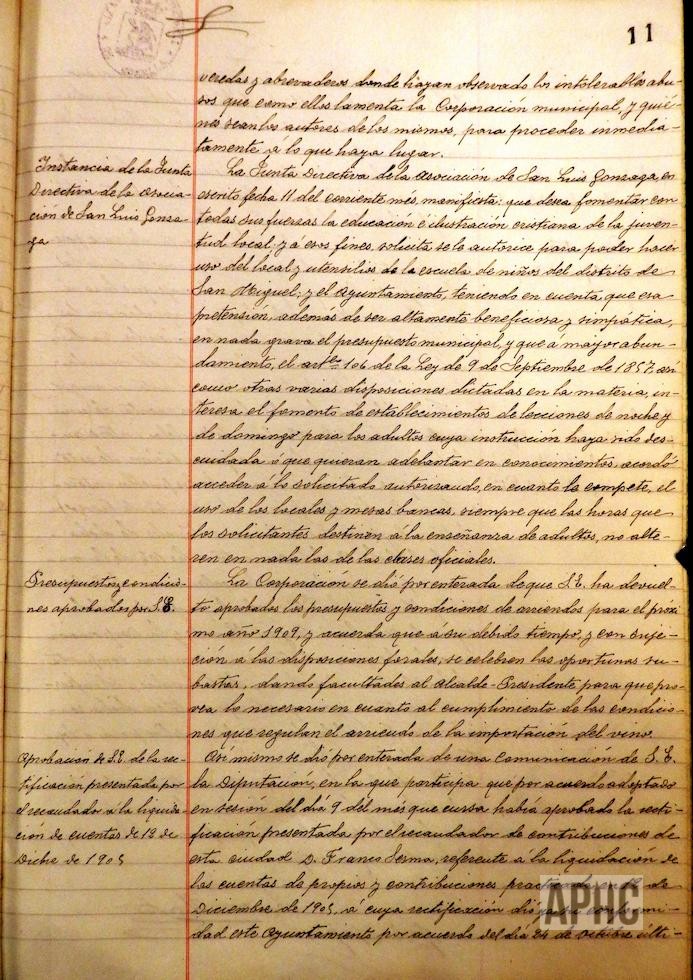 11
veredas y abrevaderos donde hayan observado los intolerables abu-
sos que como ellos lamenta la Corporación municipal, y quié-
nes sean los autores de los mismos, para proceder inmedia-
tamente a lo que haya lugar.
Instancia de la Junta
Directiva de la Asocia-
ción de San Luis Gonza-
ga
La Junta Directiva de la Asociación de San Luis Gonzaga en
escrito fecha 11 del corriente mes, manifiesta: que desea fomentar con
todas sus fuerzas la educación é ilustración cristiana de la juven-
tud local; y á esos fines, solicita se le autorice para poder hacer
uso del local y utensilios de la escuela de niños del distrito de
San Miguel; y el Ayuntamiento, teniendo en cuenta que esa
pretensión, además de ser altamente beneficiosa y simpática,
en nada grava el presupuesto municipal, y que á mayor abun-
damiento, el art.º 106 de la Ley de 9 de Septiembre de 1857. así
como otras varias disposiciones dictadas en la materia, in-
teresa el fomento de establecimientos de lecciones de noche y
de domingo para los adultos cuya instrucción haya sido des-
cuidada ó que quieran adelantar en conocimientos, acordó
acceder á lo solicitado autorizando, en cuanto le compete, el
uso de los locales y mesas bancas, siempre que las horas que
los solicitantes destinen á la enseñanza de adultos, no alte-
ren en nada las de las clases oficiales.
Presupuestos y condicio-
nes aprobados por S.E.
La Corporación se dió por enterada de que S.E. ha devuel-
to aprobados los presupuestos y condiciones de arriendos para el próxi-
mo año 1909, y acuerda que á su debido tiempo, y con suje-
ción á las disposiciones forales, se celebren las oportunas su-
bastas, dando facultades al Alcalde-Presidente para que pro-
vea lo necesario en cuanto al cumplimiento de las condicio-
nes que regulan el arriendo de la importación del vino.
Aprobación de S.E. de la rec-
tificación presentada por
el recaudador a la liquida-
cion de cuentas de 13 de
Dicbre de 1905
Así mismo se dió por enterada de una comunicación de S.E.
la Diputación, en la que participa que por acuerdo adoptado
en sesión del día 9 del mes que cursa había aprobado la recti-
ficación presentada por el recaudador de contribuciones de
esta ciudad D. Franco Serma, referente á la liquidación de
las cuentas de propios y contribuciones practicada en 13 de
Diciembre de 1905, á cuya rectificación dió su confor mi-
dad este Ayuntamiento por acuerdo del día 24 de Octubre últi-
APHC